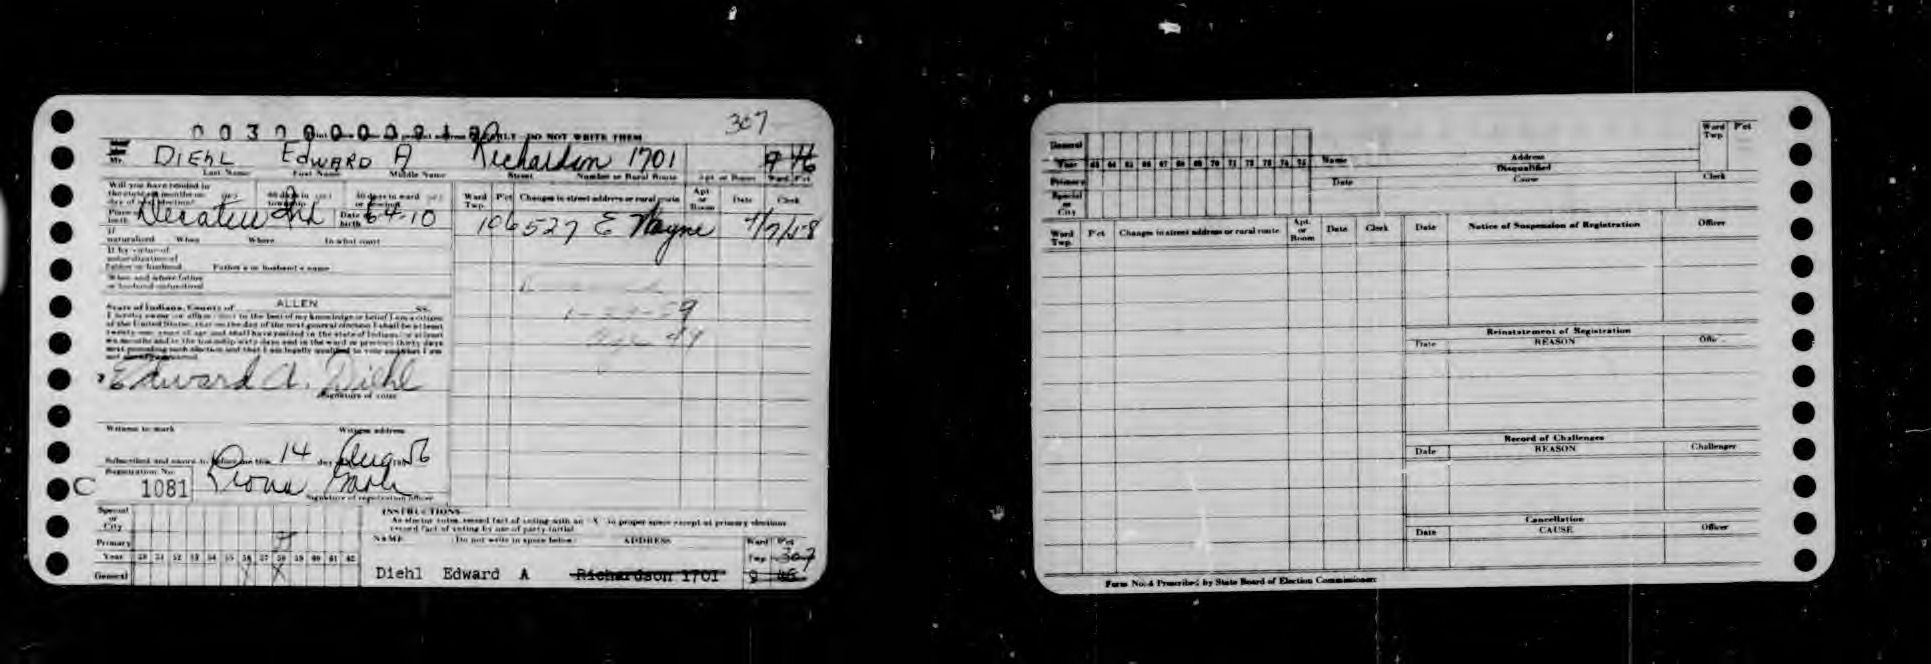 307
EARLY DO NOT WRITE THEM
Mr. DIEHL EDWARD A Richardson 1701 9 46
Last Name First Name Middle Name Street Number or Rural Route Apt or Room Ward P'ct
Will you have resided in
Place birth Decatur Ind Date birth 6-4-10
Ward Twp. P'ct Changes in street address or rural route Apt or Room Date Clerk
106 527 E Wayne 4/7/58
If naturalized When Where In what court
If by virtue of naturalization of Father or husband Father's or husband's name
When and where father or husband naturalized
State of Indiana, County of ALLEN SS.
of the United States, that on the day of the next general election I shall be at least
twenty-one years of age and shall have resided in the state of Indiana, at least
six months and in the township sixty days and in the ward or precinct thirty days
next preceding such election and that I am legally qualified to vote
age 49
Edward A. Diehl
Signature of voter
Witness to mark Witness address
Subscribed and sworn to before me this 14 day Aug 56
Registration No.
C 1081
Signature of registration officer
Special or City
Primary
Year 50 51 52 53 54 55 56 57 58 59 60 61 62
General X X
INSTRUCTIONS
An elector votes, record fact of voting with an "X" in proper space except at primary elections
record fact of voting by use of party initial
NAME Do not write in space below ADDRESS Ward Twp P'ct
307
Diehl Edward A Richardson 1701 9 46
General
Year 63 64 65 66 67 68 69 70 71 72 73 74 75 Name Address Ward Twp. P'ct
Disqualified
Primary Date Cause Clerk
Special or City
Ward Twp. P'ct Changes in street address or rural route Apt. or Room Date Clerk Date Notice of Suspension of Registration Officer
Reinstatement of Registration
Date REASON
Record of Challenges
Date REASON Challenger
Cancellation
Date CAUSE Officer
Form No. 4 Prescribed by State Board of Election Commissioners